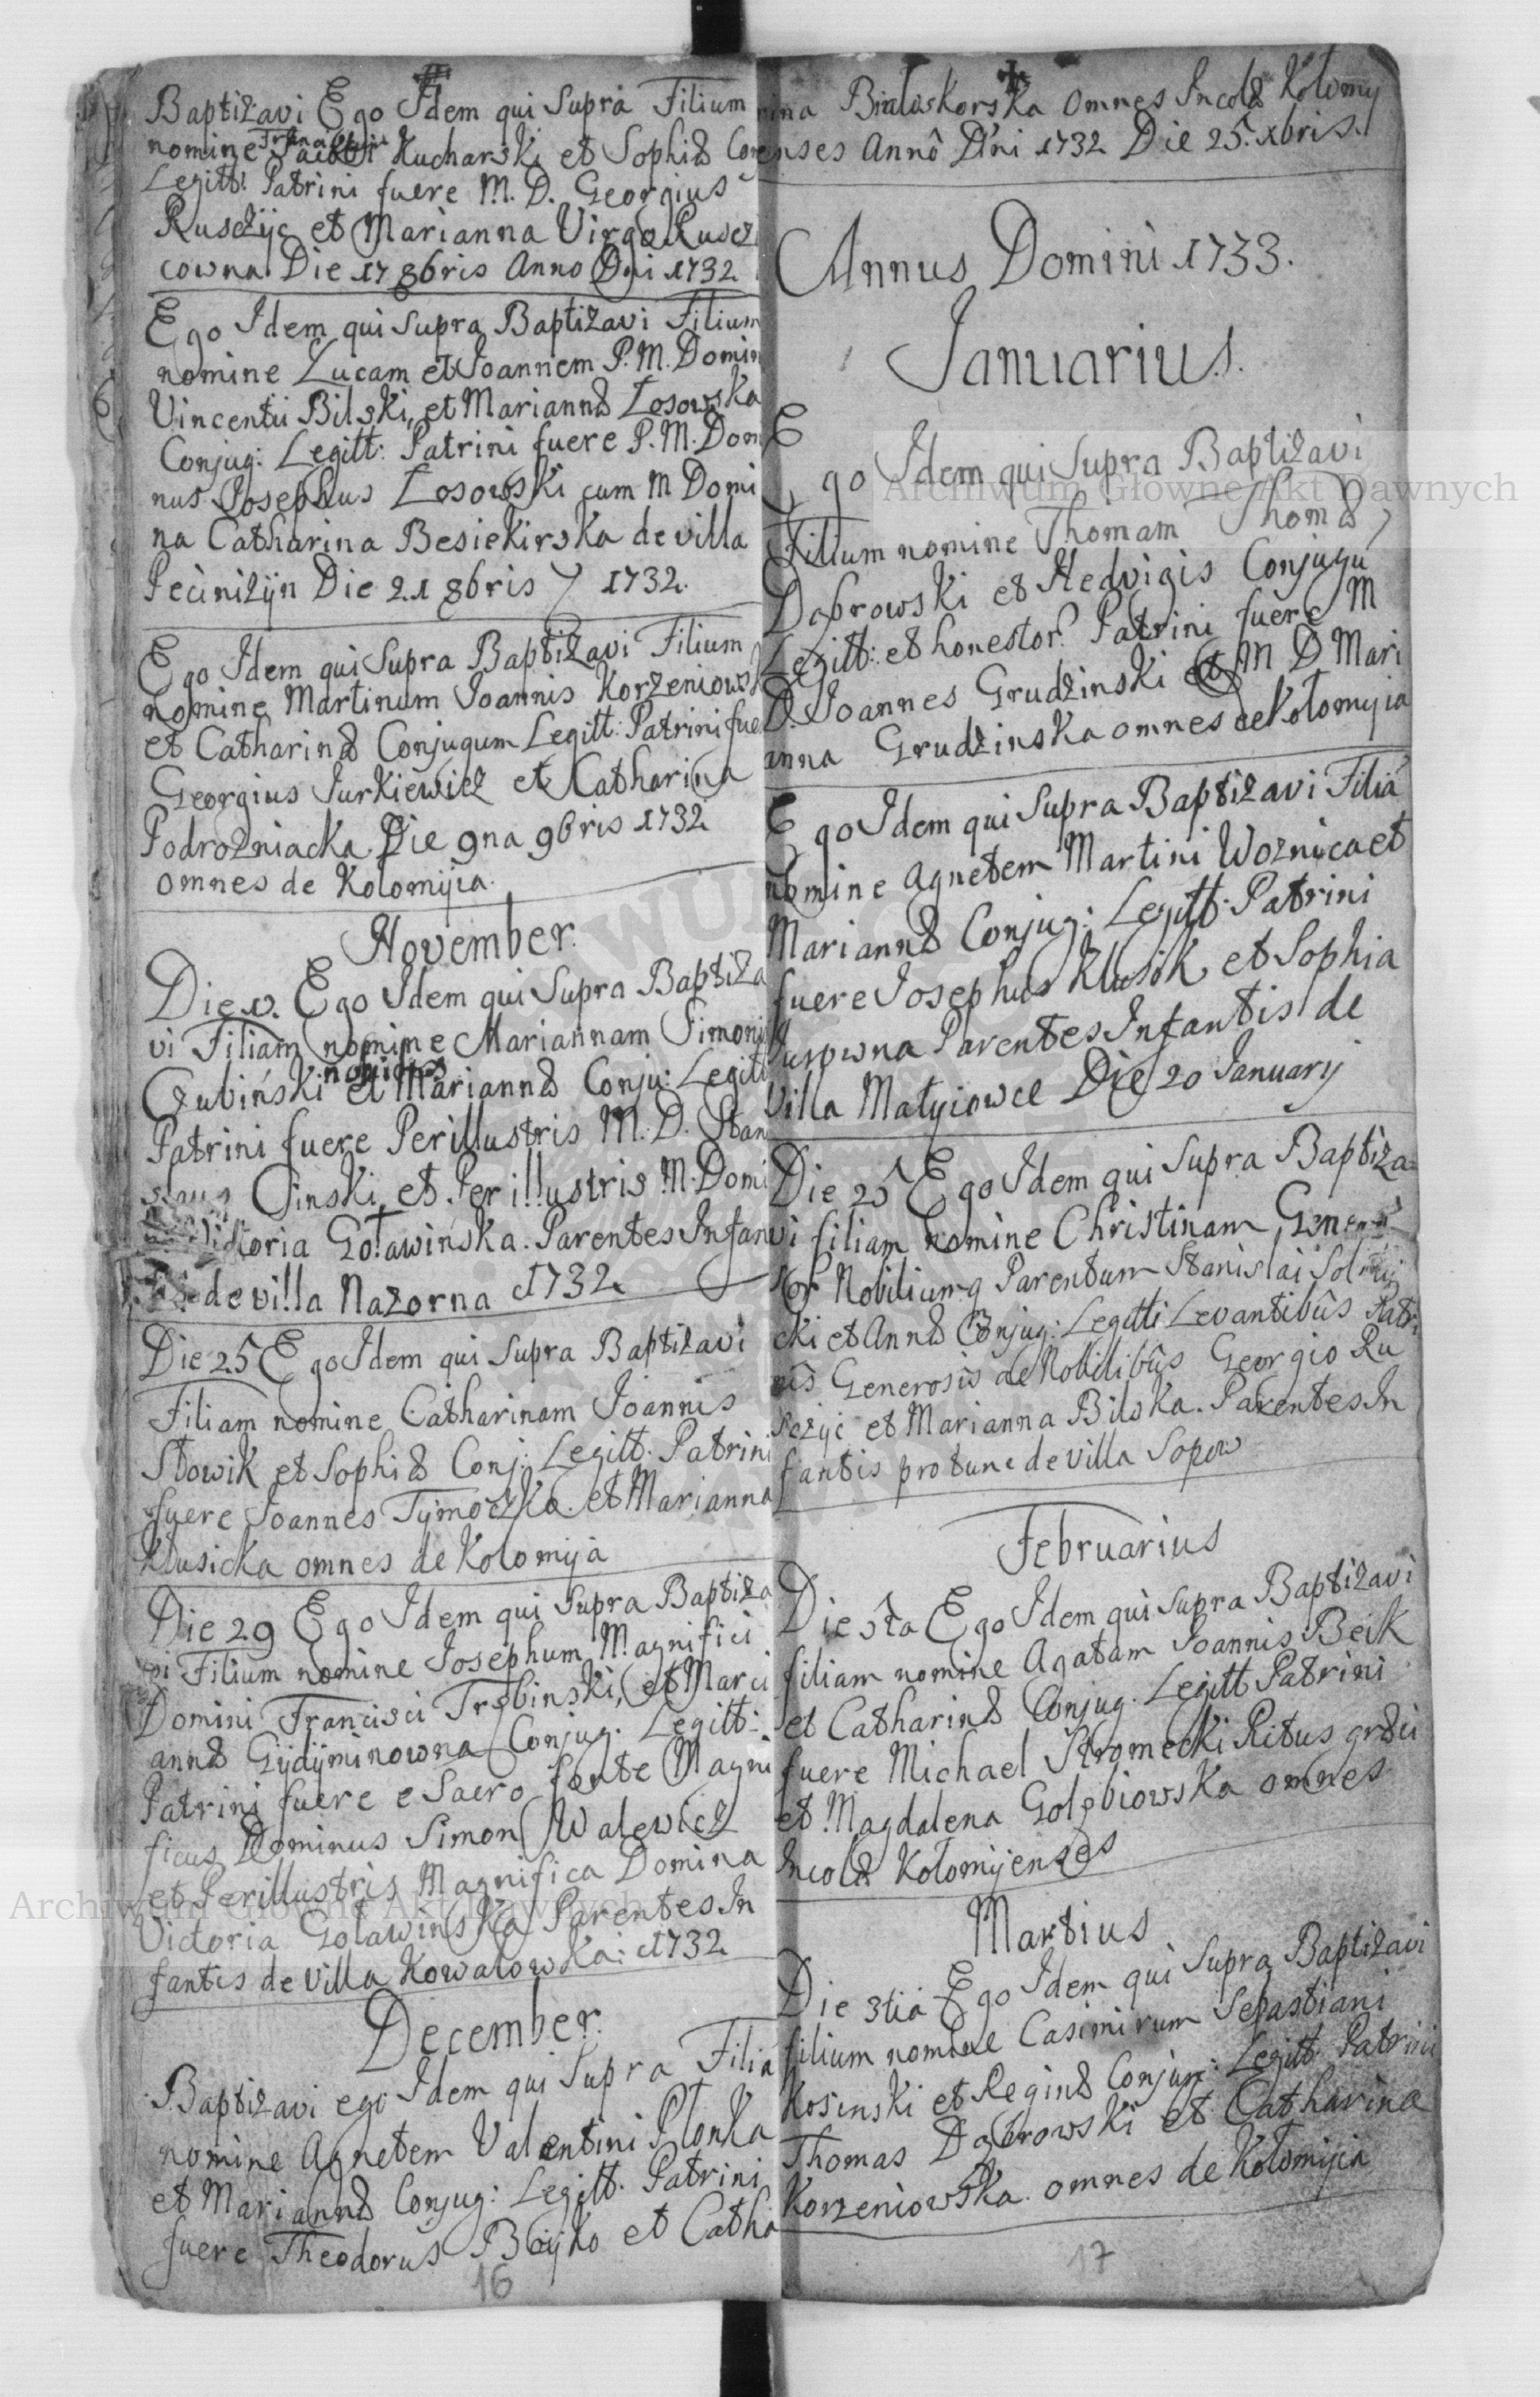 Baptizavi Ego Idem qui Supra Filium
nomine Jacobi Kucharski et Sophiæ Con
Franciscum
Legitt: Patrini fuere M. D. Georgius
Rusczyc et Marianna Virgo Ruscz
cowna Die 17 8bris Anno Dni 1732
Ego Idem qui Supra Baptizavi Filium
nomine Lucam et Joannem P. M. Domin
Vincentii Bilski, et Mariannæ Łosowska
Conjug: Legitt: Patrini fuere P. M. Dom
nus Josephus Łosowski cum M Domi
na Catharina Besiekirska de villa
Peciniżÿn Die 21 8bris 1732.
Ego Idem qui Supra Baptizavi Filium
nomine Martinum Joannis Korzeniows
et Catharinæ Conjugum Legitt: Patrini fue
Georgius Jurkiewicz et Catharina
Podrozniacka Die 9na 9bris 1732
omnes de Kolomÿia.
November.
Ego Idem qui Supra Baptiza
vi Filiam nomine Mariannam Simoni
nobiles
Czubiński et Mariannæ Conju: Legitt
Patrini fuere Perillustris M. D. Stan
Cinski, et Perillustris M. Domi
Victoria Goławinska. Parentes Infan
de villa Nazorna 1732
Die 25 Ego Idem qui Supra Baptizavi
Filiam nomine Catharinam Joannis
Słowik et Sophiæ Conj: Legitt. Patrini
fuere Joannes Tÿmoczko et Marianna
Klusicka omnes de Kolomÿia
Die 29 Ego Idem qui Supra Baptiza
vi Filium nomine Josephum Magnifici
Domini Francisci Trębinski, et Mari
annæ Gÿdÿminowna Conjug: Legitt:
Patrini fuere e Sacro fonte Magni
ficus Dominus Simon Walewicz
et Perillustris Magnifica Domina
Victoria Golawinska Parentes In
fantis de villa Kowalowka: 1732
December.
Baptizavi ego Idem qui Supra Filiã
nomine Agnetem Valentini Płonka
et Mariannæ Conjug: Legitt. Patrini
fuere Theodorus Boÿko et Catha
16
rina Białoskorska omnes Incolæ Kolomy
enses Annô Dñi 1732 Die 25. xbris.
Annus Domini 1733.
Januarius.
Ego Idem qui Supra Baptizavi
Filium nomine Thomam Thomæ
Dąbrowski et Hedvigis Conjugũ
Legitt: et honestor. Patrini fuere M
D. Joannes Grudzinski et M D Mari
anna Grudzinska omnes de Kolomyia
Ego Idem qui Supra Baptizavi Filiã
nomine Agnetem Martini Woznica et
Mariannæ Conjug: Legitt: Patrini
fuere Josephus Klusik et Sophia
Parentes Infantis de
Villa Matyiowce Die 20 January
Die 25 Ego Idem qui Supra Baptiza
vi filiam nomine Christinam Genero
sor Nobiliumq Parentum Stanislai
cki et Annæ Conjug: Legitti Levantibûs Patri
nîs Generosis ac Nobilibûs Georgio Ru
sczyc et Marianna Bilska. Parentes In
fantis pro tunc de villa Sopow
Februarius
Die 5ta Ego Idem qui Supra Baptizavi
filiam nomine Agatam Joannis Beik
et Catharinæ Conjug. Legitt Patrini
fuere Michael Stromecki Ritus græci
et Magdalena Golębiowska omnes
Incolæ Kołomyenses
Martius
Die 3tia Ego Idem qui Supra Baptizavi
filium nomine Casimirum Sebastiani
Kosinski et Reginæ Conjug: Legitt Patrini
Thomas Dąbrowski et Catharina
Korzeniowska omnes de Kołomÿia
17
Archiwum Główne Akt Dawnych
Archiwum Główne Akt Dawnych